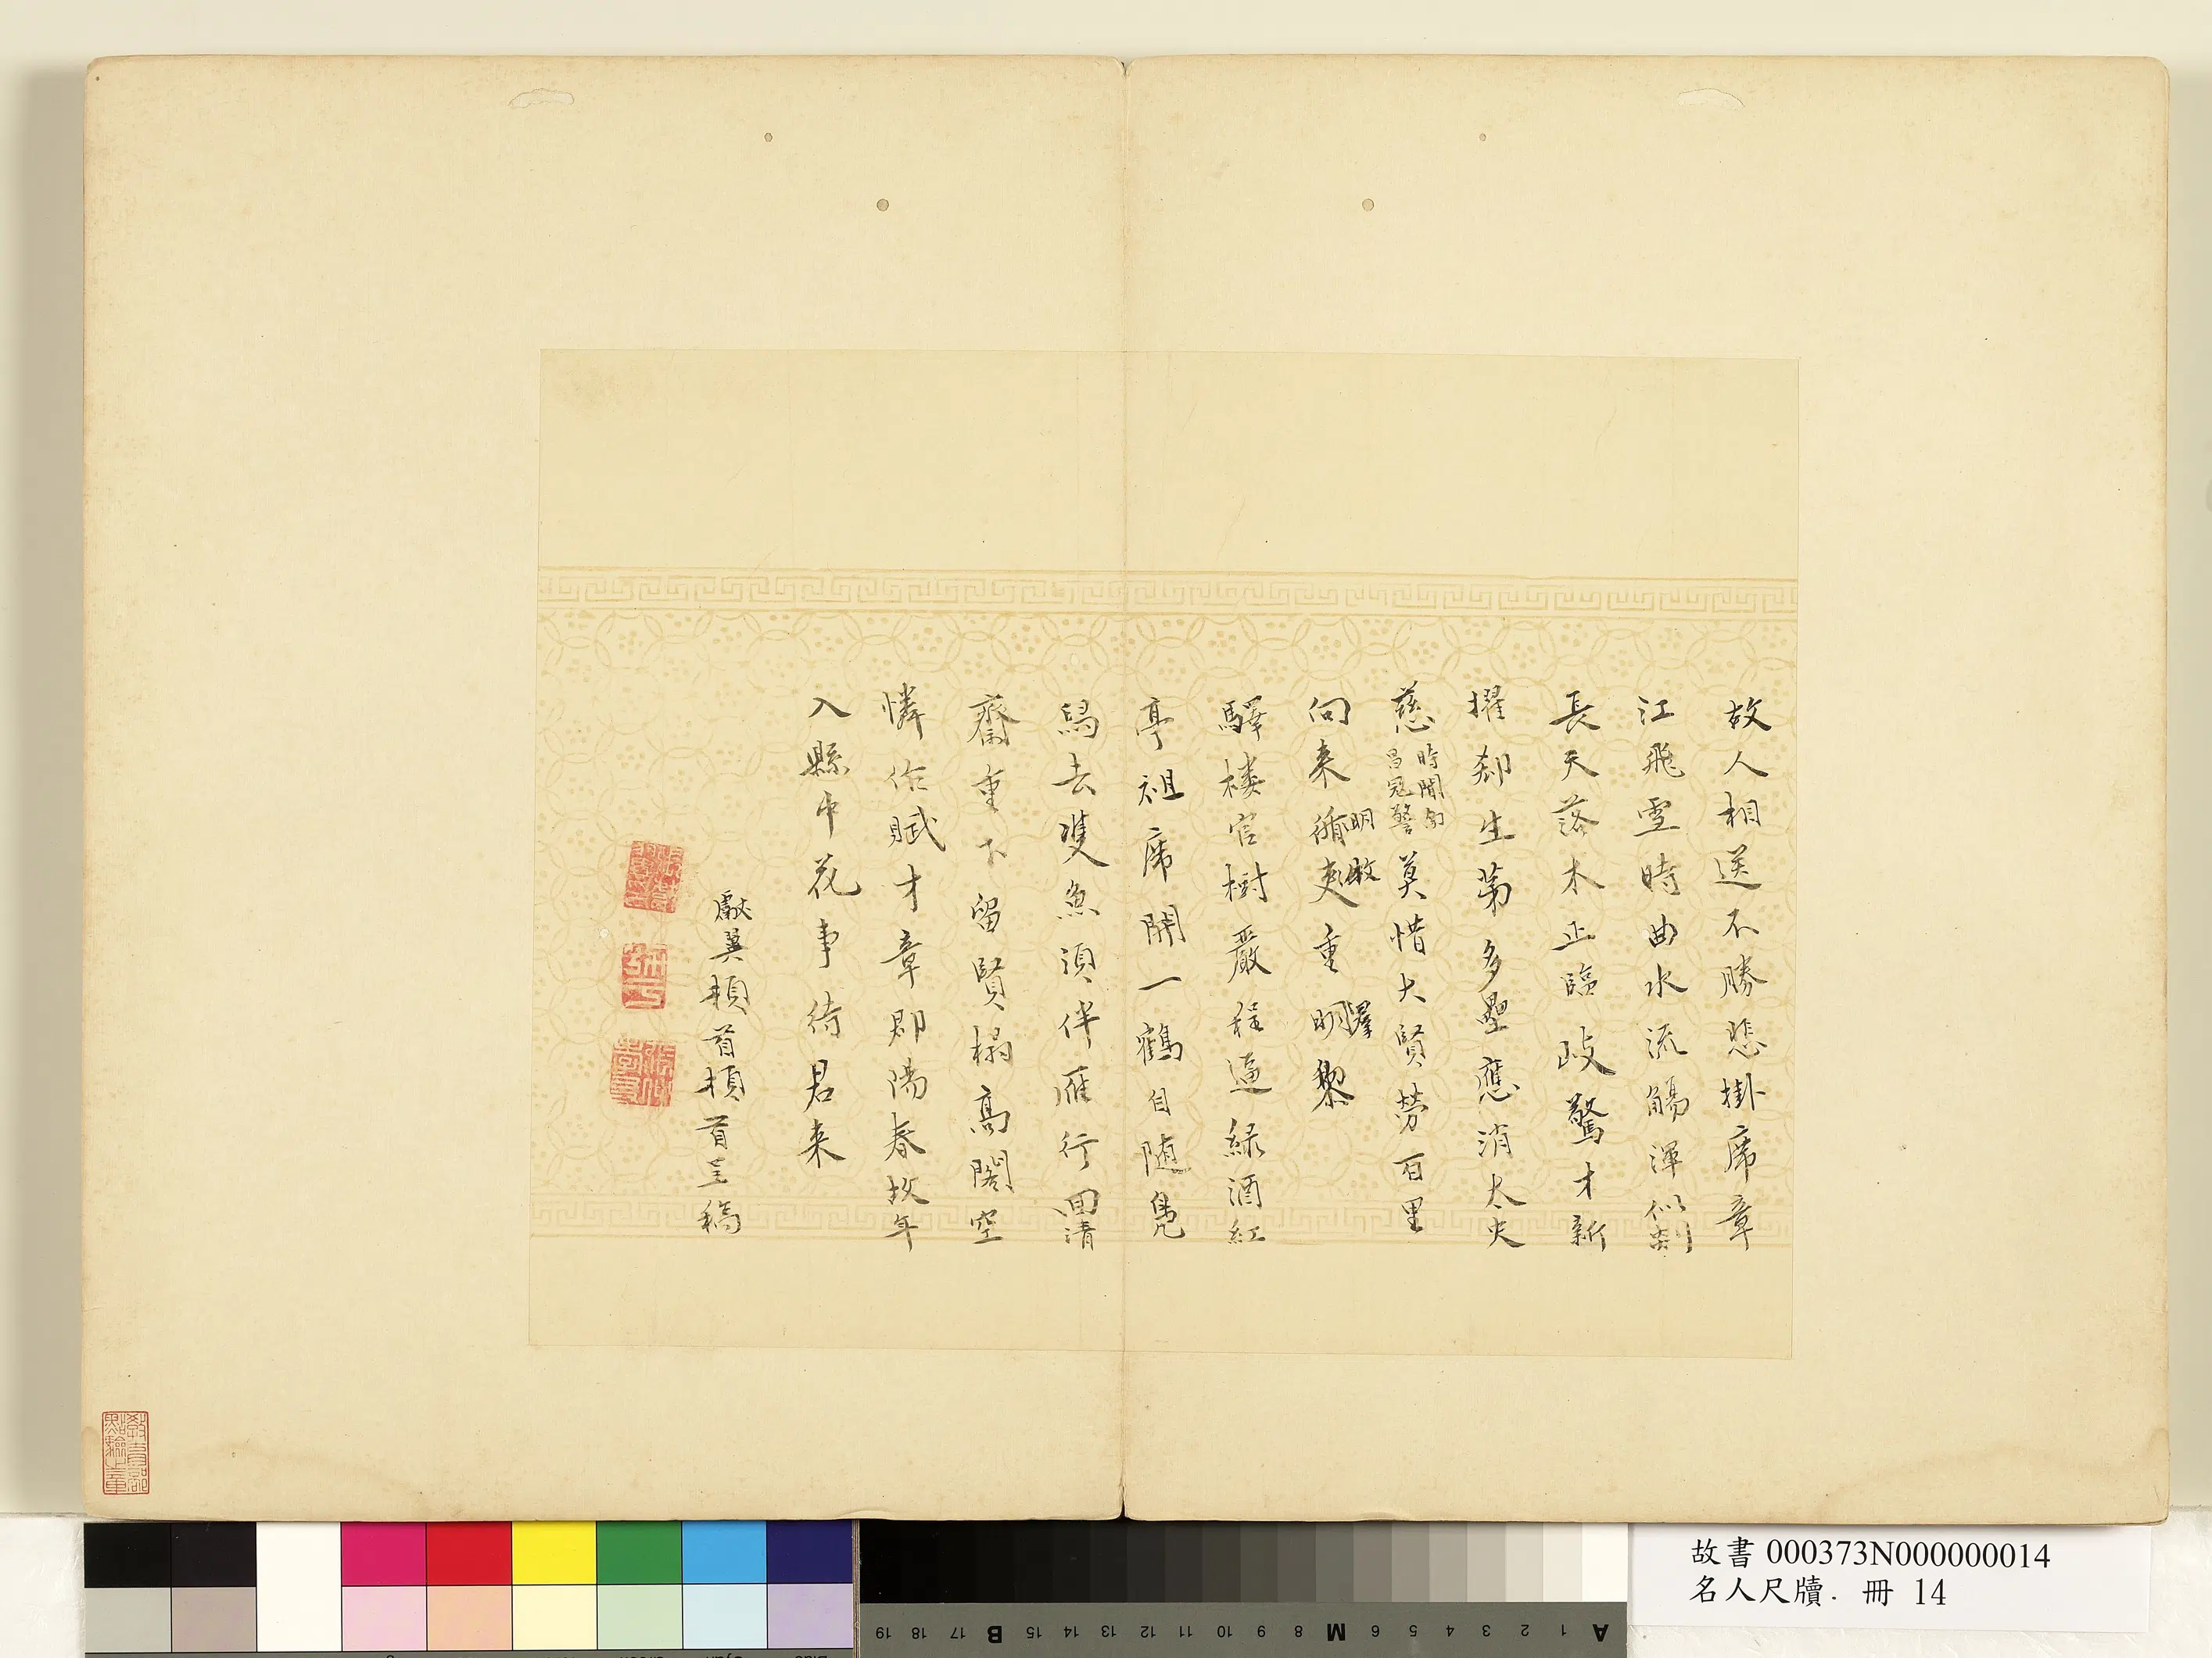 故人相送不勝悲掛席章
江飛雪時曲水流觴渾似剡
長天落木正臨岐驚才新
擢郄生第多壘應消太史
慈時聞南昌寇警莫惜大賢勞百里
向來循吏重明黎
明敭
驛樓官樹嚴程逼綠酒紅
亭祖席開一鶴自隨鳧
舄去雙魚須伴雁行回清
齋重下留賢榻高閣空
憐作賦才章郡陽春故年
入縣中花事待君來
獻翼頓首頓首呈稿
教育部
點驗之章
故書 000373N000000014
名人尺牘. 冊 14
A 1 2 3 4 5 6 M 8 9 10 11 12 13 14 15 B 17 18 19